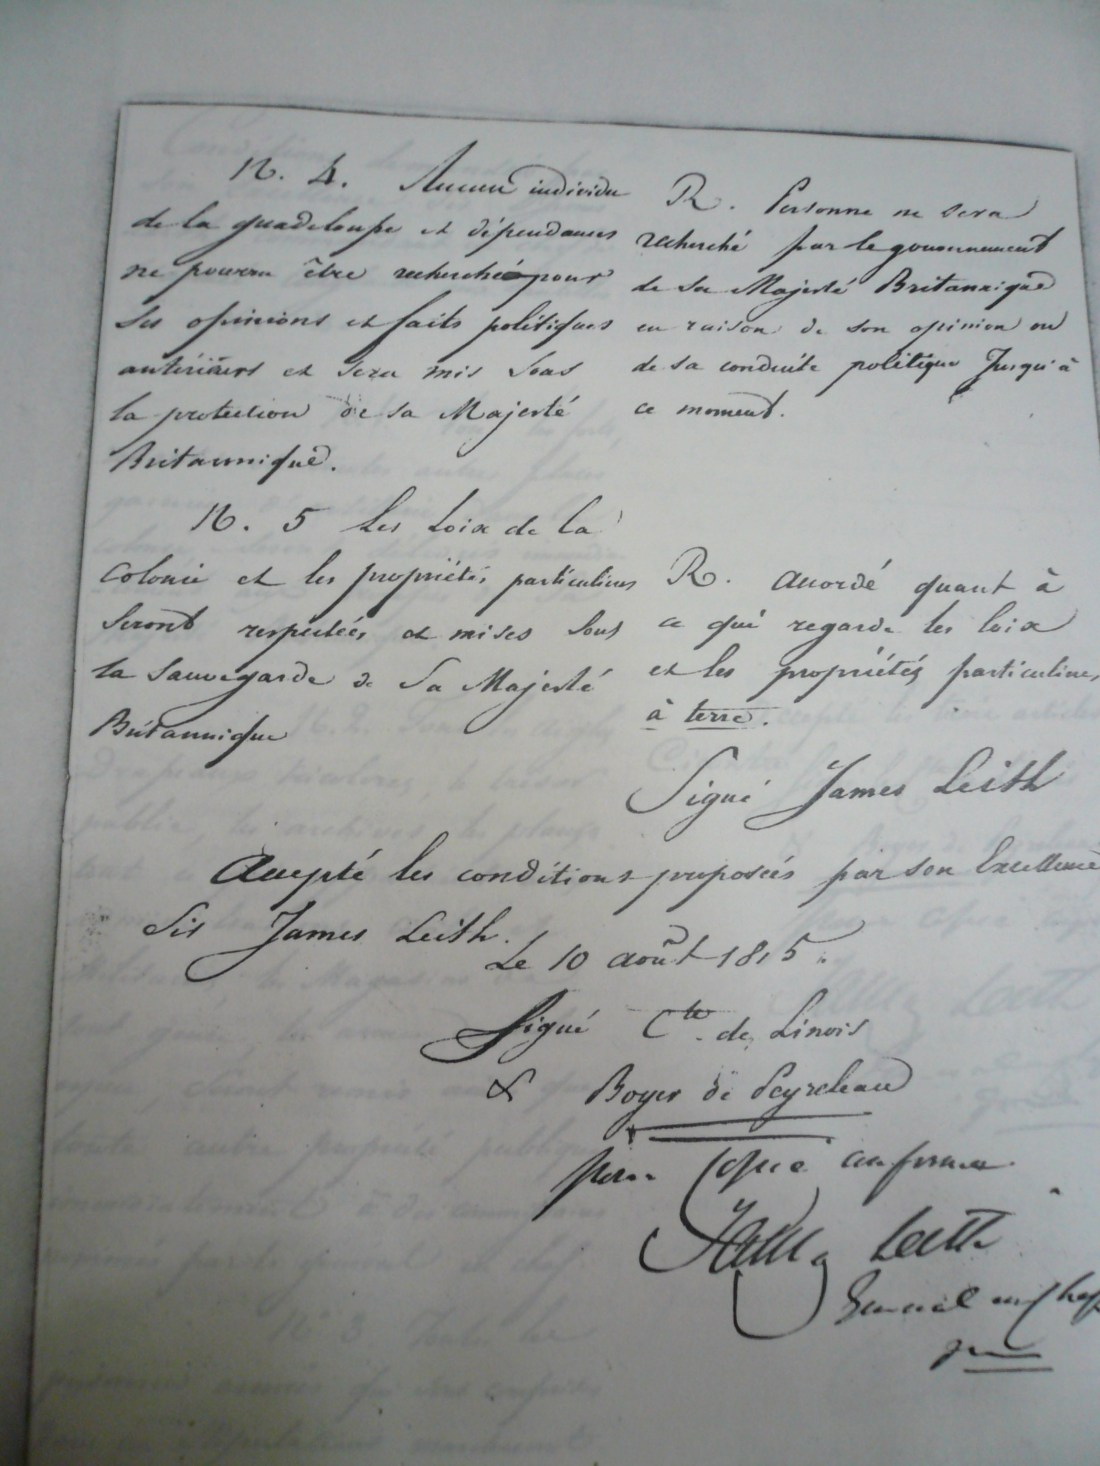 N. 4. Aucun individu
de la guadeloupe et dépendances
ne pourra être recherché pour
ses opinions et faits politiques
antérieurs et sera mis sous
la protection de sa Majesté
Britannique.
R. Personne ne sera
recherché par le gouvernement
de sa Majesté Britannique
en raison de son opinion ou
de sa conduite politique jusqu'à
ce moment.
N. 5 Les Loix de la
Colonie et les propriétés particulieres
seront respectées et mises sous
la sauvegarde de Sa Majesté
Britannique
R. accordé quant à
ce qui regarde les loix
et les propriétés particulieres
à terre.
Signé James Leith
Accepté les conditions proposées par son Excellence
Sir James Leith.
Le 10 août 1815.
Signé Cte de Linois
& Boyer de Peyreleau
pour Copie conforme
James Leith
General en Chef